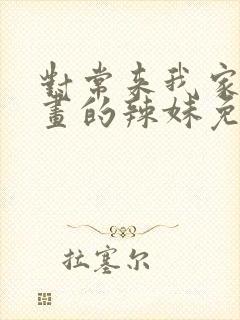 對常来我家
畫的辣妹免
拉塞尔